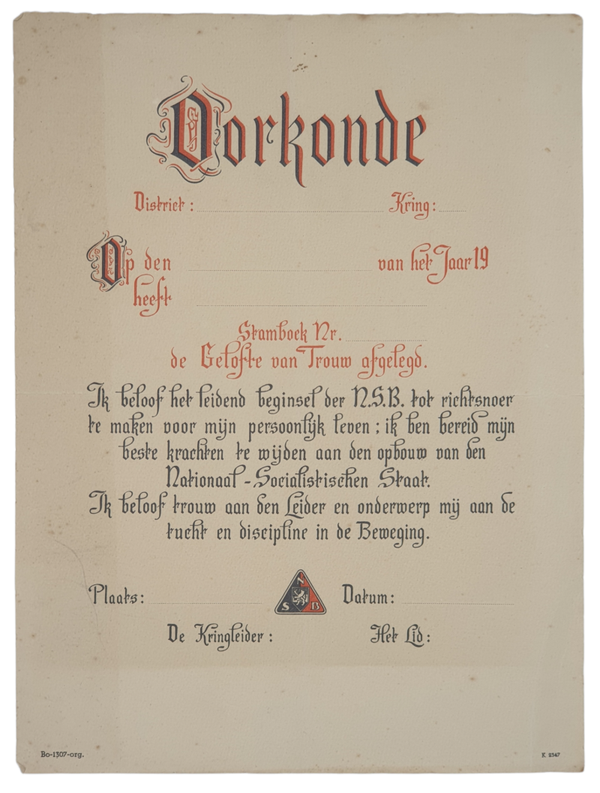 Oorkonde
District: Kring:
Op den van het Jaar 19
heeft
Stamboek Nr.
de Gelofte van Trouw afgelegd.
Ik beloof het leidend beginsel der N.S.B. tot richtsnoer
te maken voor mijn persoonlijk leven; ik ben bereid mijn
beste krachten te wijden aan den opbouw van den
Nationaal-Socialistischen Staat.
Ik beloof trouw aan den Leider en onderwerp mij aan de
tucht en discipline in de Beweging.
Plaats: N S B Datum:
De Kringleider: Het Lid:
Bo-1307-org. K 2547